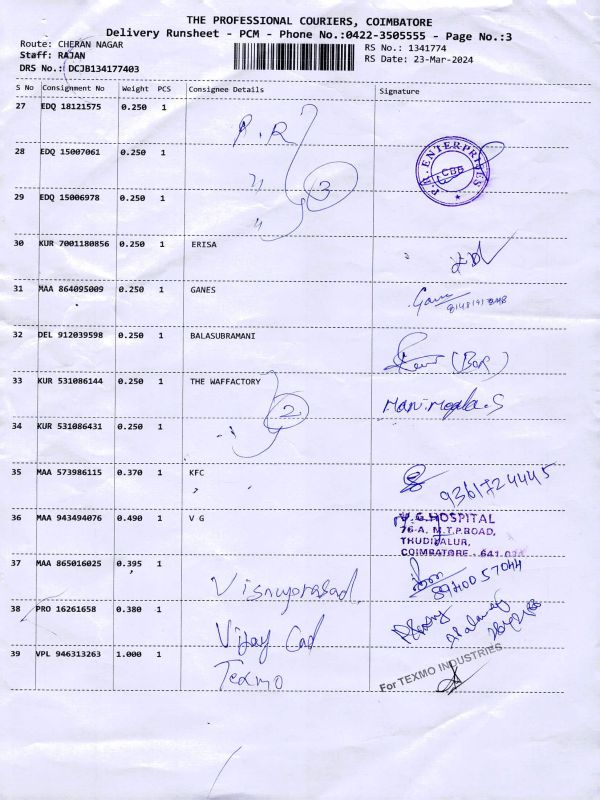 THE PROFESSIONAL COURIERS, COIMBATORE
Delivery Runsheet - PCM - Phone No.:0422-3505555 - Page No.:3
Route: CHERAN NAGAR
RS No.: 1341774
Staff: RAJAN
RS Date: 23-Mar-2024
DRS No.: DCJB134177403
S No Consignment No Weight PCS Consignee Details Signature
27 EDQ 18121575 0.250 1
P.R
28 EDQ 15007061 0.250 1
P.R. ENTERPRISES
CBE
3
29 EDQ 15006978 0.250 1
30 KUR 7001180856 0.250 1 ERISA
31 MAA 864095009 0.250 1 GANES
32 DEL 912039598 0.250 1 BALASUBRAMANI
33 KUR 531086144 0.250 1 THE WAFFACTORY
2
34 KUR 531086431 0.250 1
35 MAA 573986115 0.370 1 KFC
9361724445
36 MAA 943494076 0.490 1 V G
V.G.HOSPITAL
76-A, M.T.P.ROAD,
THUDIYALUR,
COIMBATORE - 641
37 MAA 865016025 0.395 1
8940057044
Visnuprasad
38 PRO 16261658 0.380 1
Vijay Cad
39 VPL 946313263 1.000 1
Texmo
For TEXMO INDUSTRIES